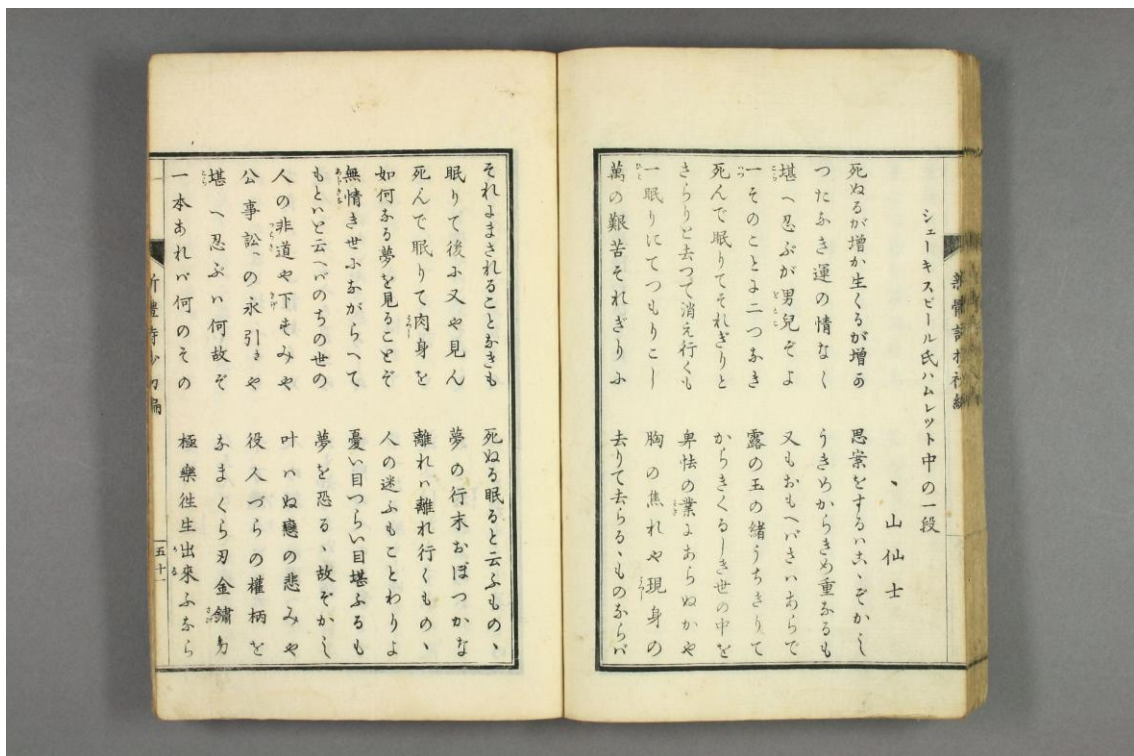 新體詩抄初編
シェーキスピール氏ハムレット中の一段
ヽ山仙士
死ぬるが増か生くるが増か　思案をするハこゝぞかし
つたなき運の情なく　うきめからきめ重なるも
堪へ忍ぶが男兒ぞよ　又もおもへバさハあらで
一そのことに二つなき　露の玉の緒うちきりて
死んで眠りてそれぎりと　からきくるしき世の中を
きらりと去つて消え行くも　卑怯の業にあらぬかや
一眠りにてつもりこし　胸の焦れや現身の
萬の艱苦それぎりに　去りて去らるゝものならバ
それにまされることなきも　死ぬる眠ると云ふものゝ
眠りて後に又や見ん　夢の行末おぼつかな
死んで眠りて肉身を　離れハ離れ行くものゝ
如何なる夢を見ることぞ　人の迷ふもことわりよ
無情き世にながらへて　憂い目つらい目堪ふるも
もとハと云へバのちの世の　夢を恐るゝ故ぞかし
人の非道や下もみや　叶ハぬ戀の悲みや
公事訟への永引きや　役人づらの權柄を
堪へ忍ぶハ何故ぞ　なまくら刃金鏽身
一本あれバ何のその　極樂徃生出來ふなら
新體詩抄初編
五十一